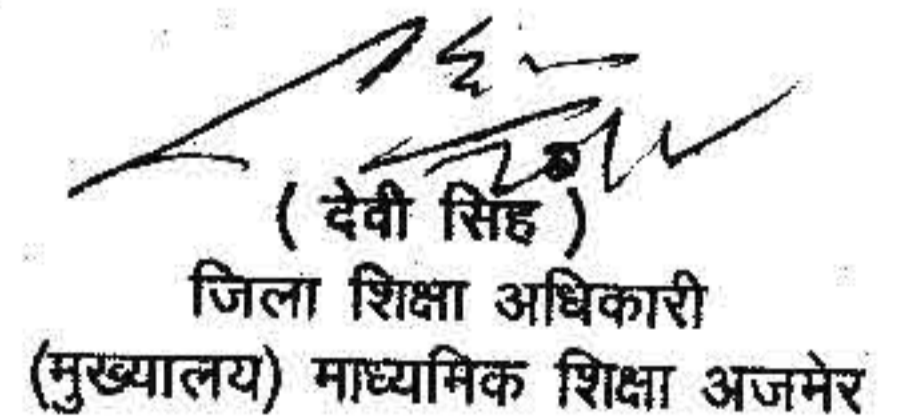 ( देवी सिंह )
जिला शिक्षा अधिकारी
(मुख्यालय) माध्यमिक शिक्षा अजमेर